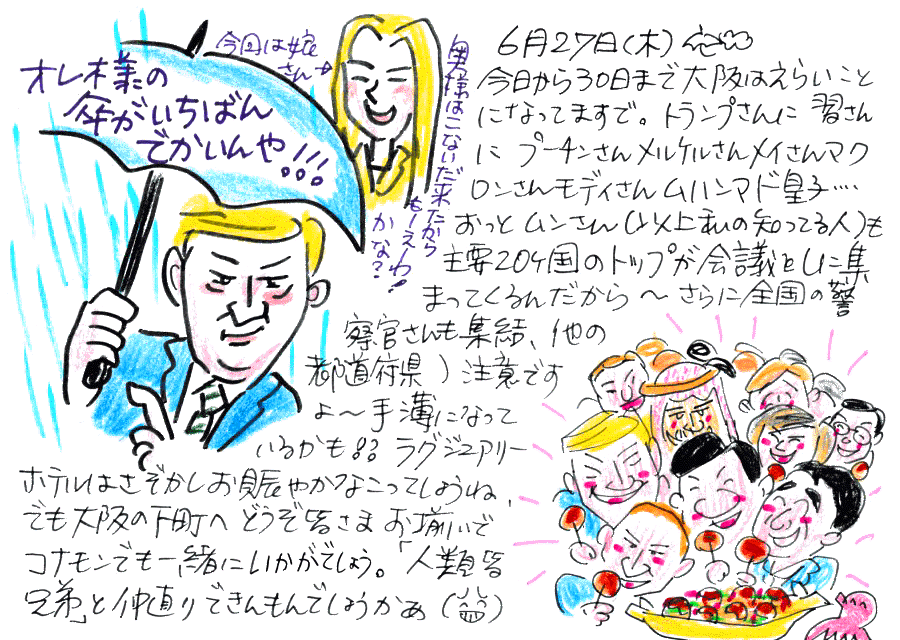 オレ様の
傘がいちばん
でかいんや!!!
今回は娘
さん→
奥様はこないだ来たから
もーえーわ!
かな?
6月27日(木)
今日から30日まで大阪はえらいこと
になってますで。トランプさんに 習さん
に プーチンさんメルケルさんメイさんマク
ロンさんモディさん ムハンマド皇子‥‥
おっと ムンさん(以上私の知ってる人)も
主要20ヶ国のトップが会議としに集
まってくるんだから〜さらに全国の警
察官さんも集結、他の
都道府県 ) 注意です
よ〜手薄になって
いるかも!!? ラグジュアリー
ホテルはさぞかしお賑やかなこってしょうね、
でも大阪の下町へどうぞ皆さまお揃いで
コナモンでも一緒にいかがでしょう。「人類皆
兄弟」と仲直りできんもんでしょうかぁ